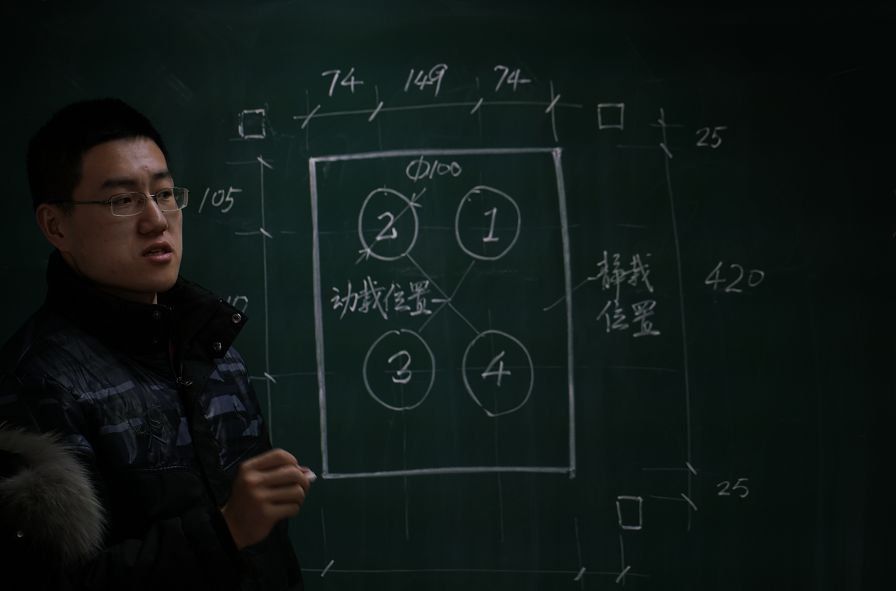 74 149 74
25
Φ100
105
2 1
静载
位置
420
动载位置
3 4
25